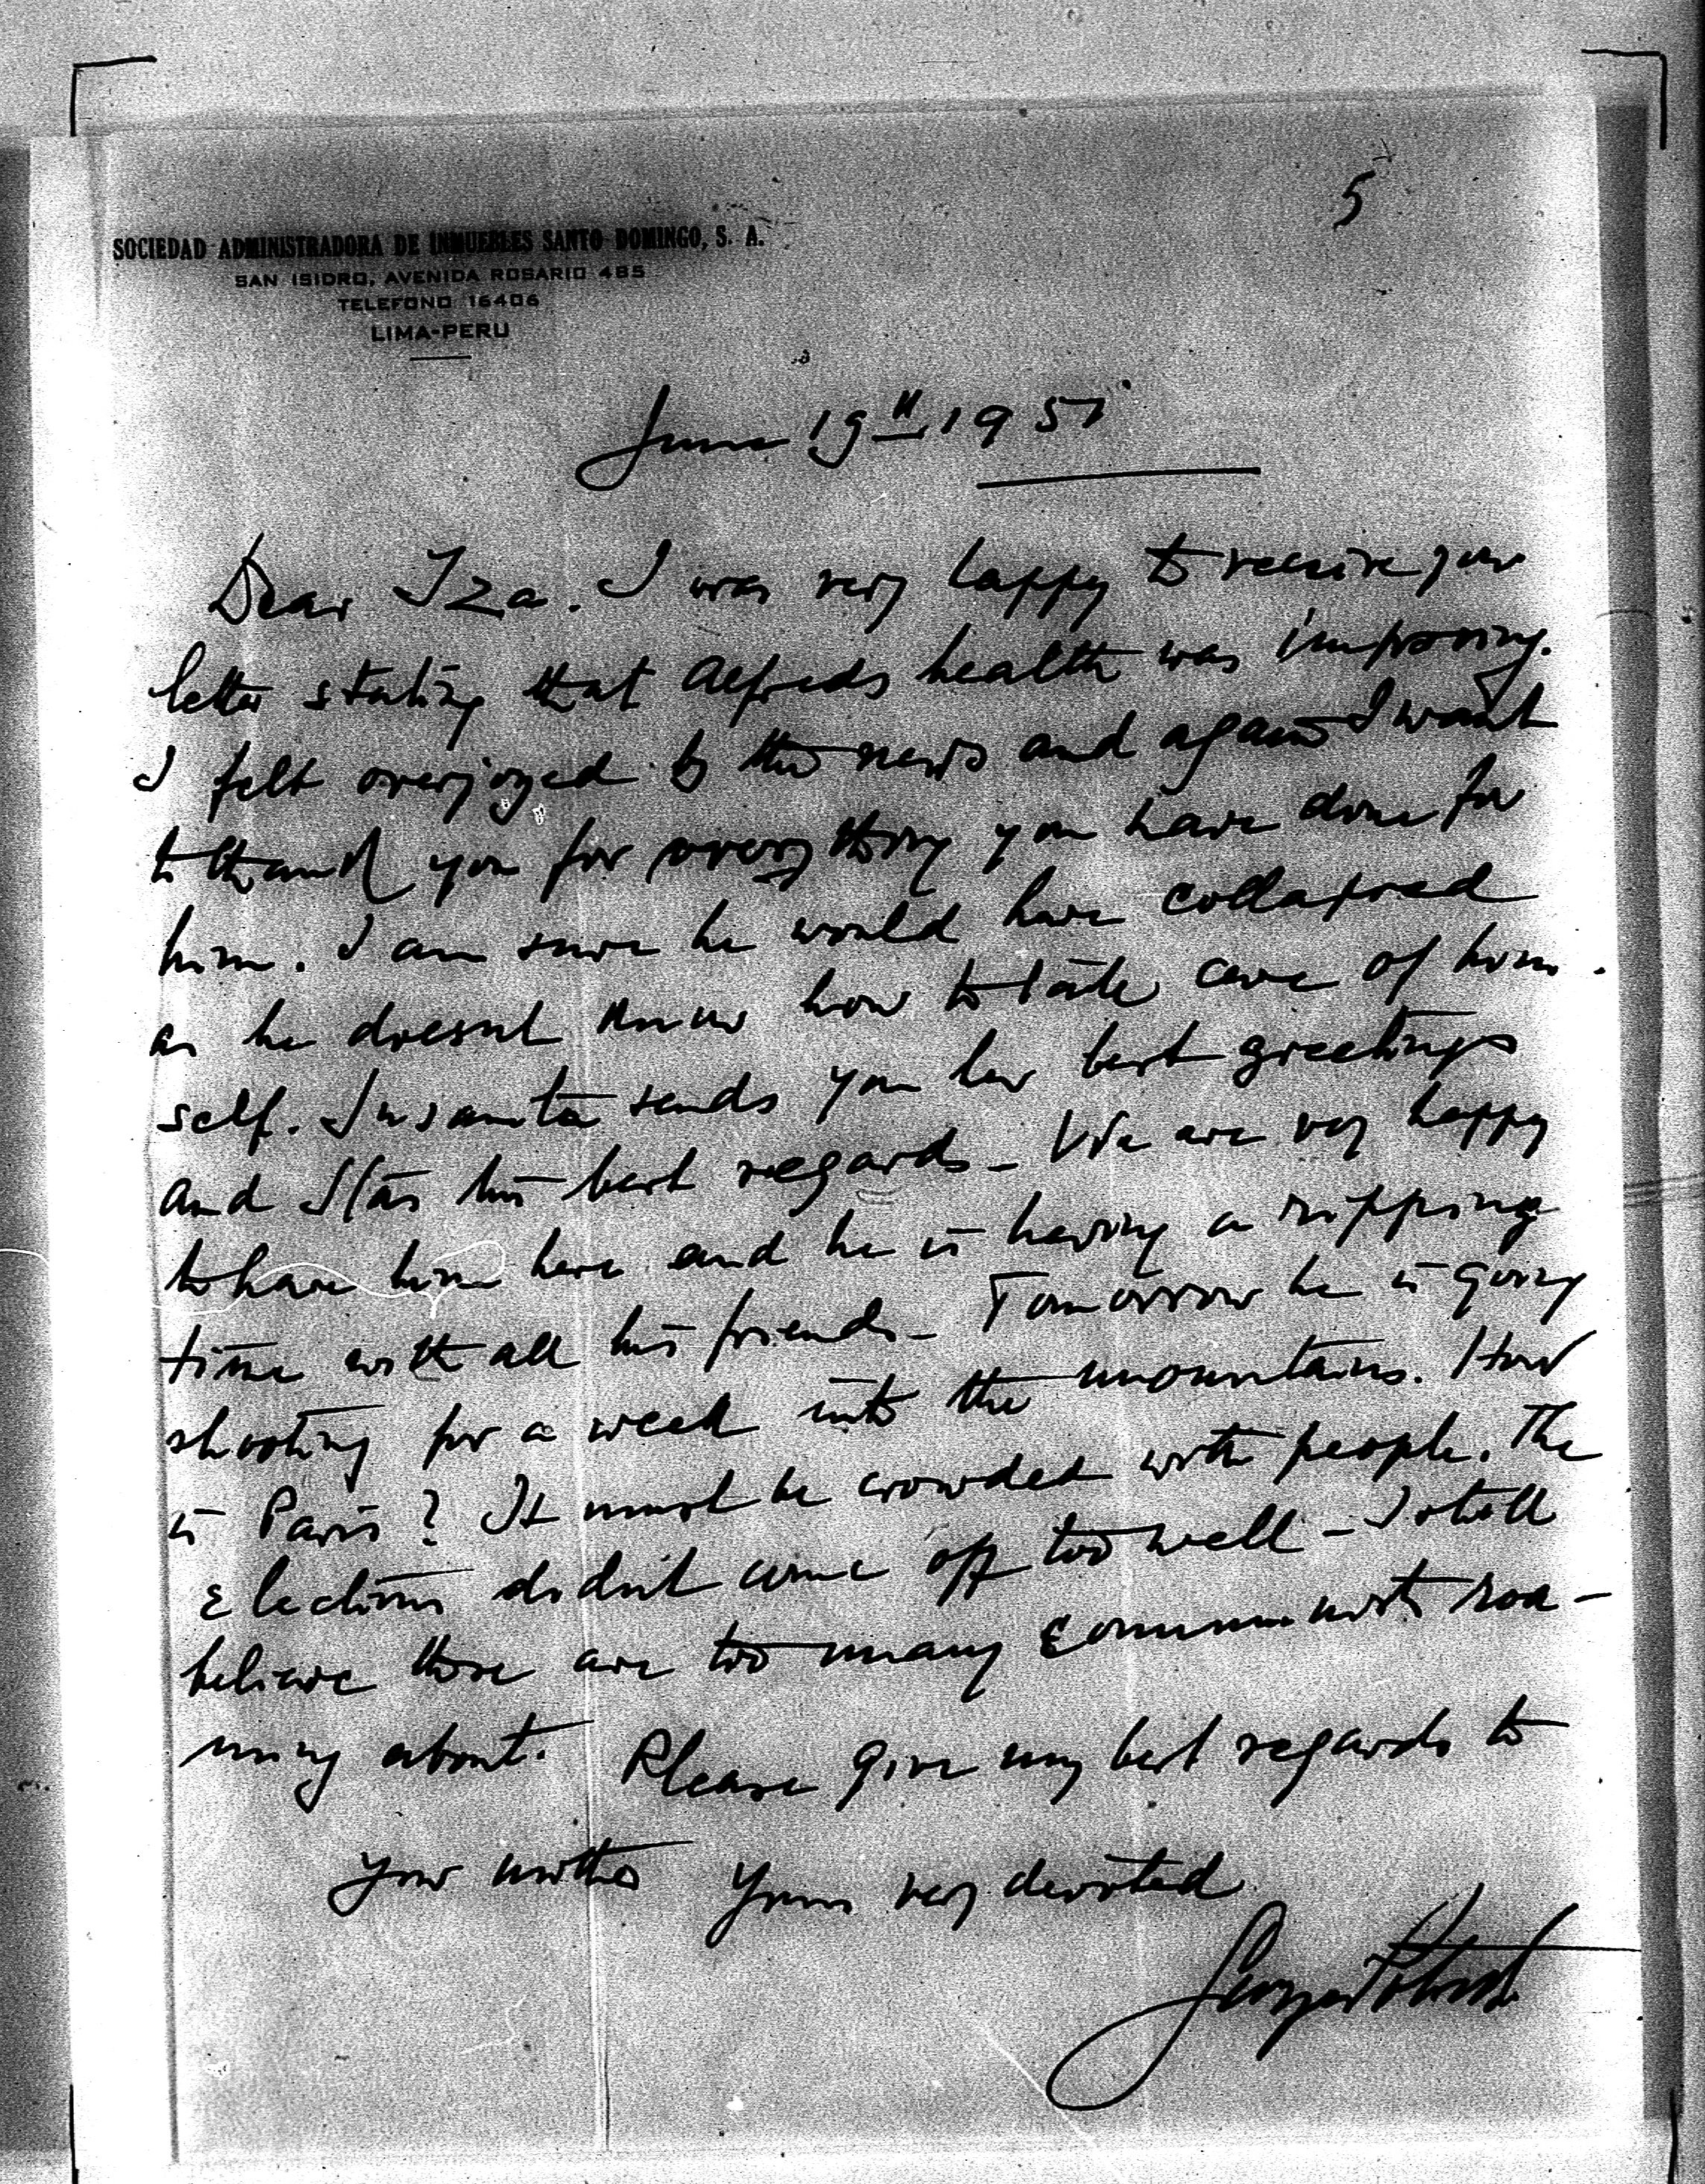 5
SOCIEDAD ADMINISTRADORA DE INMUEBLES SANTO DOMINGO, S. A.
SAN ISIDRO, AVENIDA ROSARIO 485
TELEFONO 16406
LIMA-PERU
June 19th 1951
Dear Iza. I was very happy to receive your
letter stating that Alfreds health was improving.
I felt overjoyed by the news and again I want
to thank you for everything you have done for
him. I am sure he would have collapsed
as he doesnt know how to take care of him-
self. Susanita sends you her best greetings
and Stas his best regards - We are very happy
to have him here and he is having a ripping
time with all his friends - Tomorrow he is going
shooting for a week into the mountains. How
is Paris? It must be crowded with people. The
Elections didnt come off too well - I still
believe there are too many communists roa-
ming about. Please give my best regards to
your mother Yours very devoted